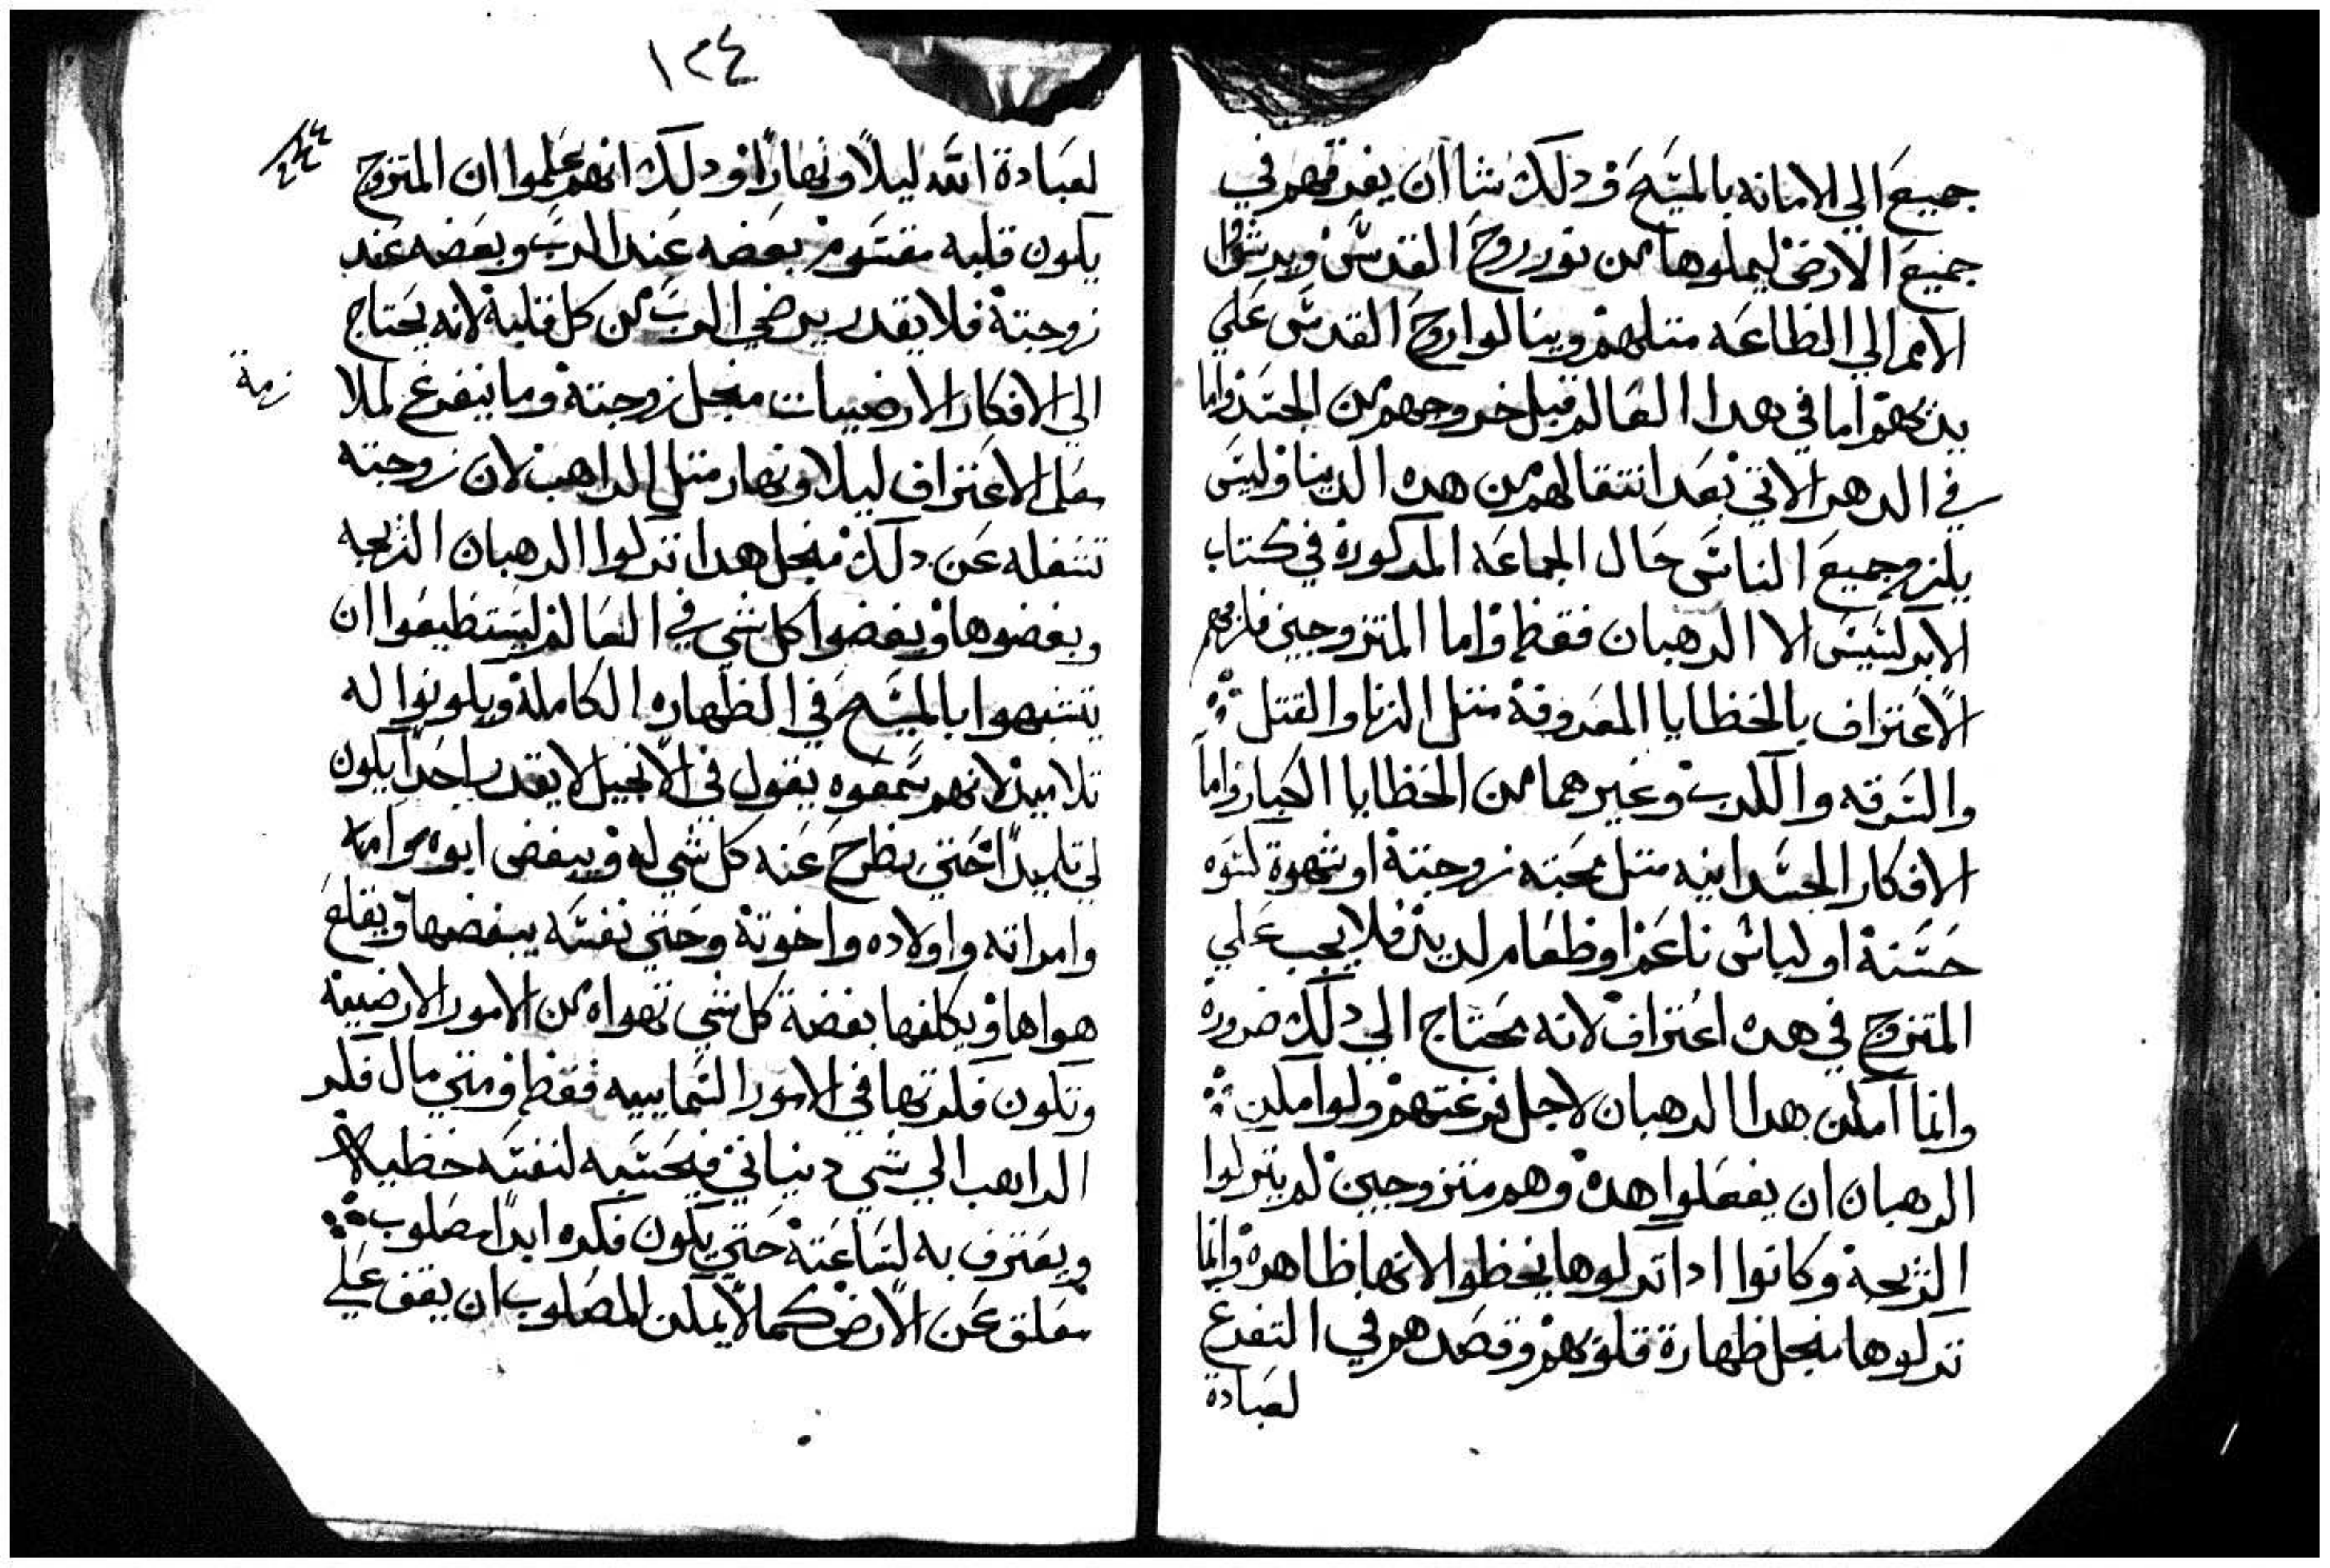 جميع الي الامانه بالمسيح ودلك شا ان يفرقهم في
جميع الارض ليملوها من نور روح القدس ويرشدوا
الامم الي الطاعه متلهم وينالوا روح القدس علي
يديهم اما في هدا العالم قبل خروجهم من الجسد واما
في الدهر الاتي بعد انتقالهم من هده الدنيا وليس
يلزم جميع الناس حال الجماعه المدكورة في كتاب
الابركسيس الا الرهبان فقط واما المتزوجين فلازمهم
الاعتراف بالخطايا المعروفة متل الزنا والقتل
والسرقه والكدب وغيرهما من الخطايا الكبار واما
الافكار الجسدانيه متل محبته زوجتة او شهوة كسوه
حسنة او لباس ناعم او طعام لديد فلا يجب علي
المتزوج في هده اعتراف لانه محتاج الي دلك ضرورة
وانما امكن هدا الرهبان لاجل فرغتهم ولو امكن
الرهبان ان يفعلوا هدة وهم متزوجين لم يتركوا
الزيجة وكانوا ادا تركوها يخطوا لانها طاهرة وانما
تركوها منجل طهارة قلوبهم وقصدهم في التفرغ
لعبادة
١٢٤
لعبادة الله ليلاً ونهاراً ودلك انهم علموا ان المتزوج
يكون قلبه مقسوم بعضه عند الرب وبعضه عند
زوجتة فلا يقدر يرضي الرب من كل قلبة لانه يحتاج
الي الافكار الارضييات منجل زوجتة وما يتفرغ لملا
عقل الاعتراف ليلا ونهار متل الراهب لان زوجته
تشغله عن دلك منجل هدا تركوا الرهبان الزيجه
وبغضوها وبغضوا كل شي في العالم ليستطيعوا ان
يتشبهوا بالمسيح في الطهاره الكاملة ويكونوا له
تلاميد لانهم سمعوه يقول في الانجيل لا يقدر احداً يكون
لي تلميداً حتي يطرح عنه كل شي له ويبغض ابوه وامه
وامراته واولاده واخوتة وحتي نفسه يبغضها ويقلع
هواها ويكلفها بغضة كل شي تهواه من الامور الارضيية
وتكون فكرتها في الامور السماييه فقط ومتي مال فكر
الراهب الي شي دنياني فيحسبه لنفسه خطيه
ويعترف به لساعتة حتي يكون فكره ابداً مصلوب
معلق عن الارض كما لا يمكن المصلوب ان يقف علي